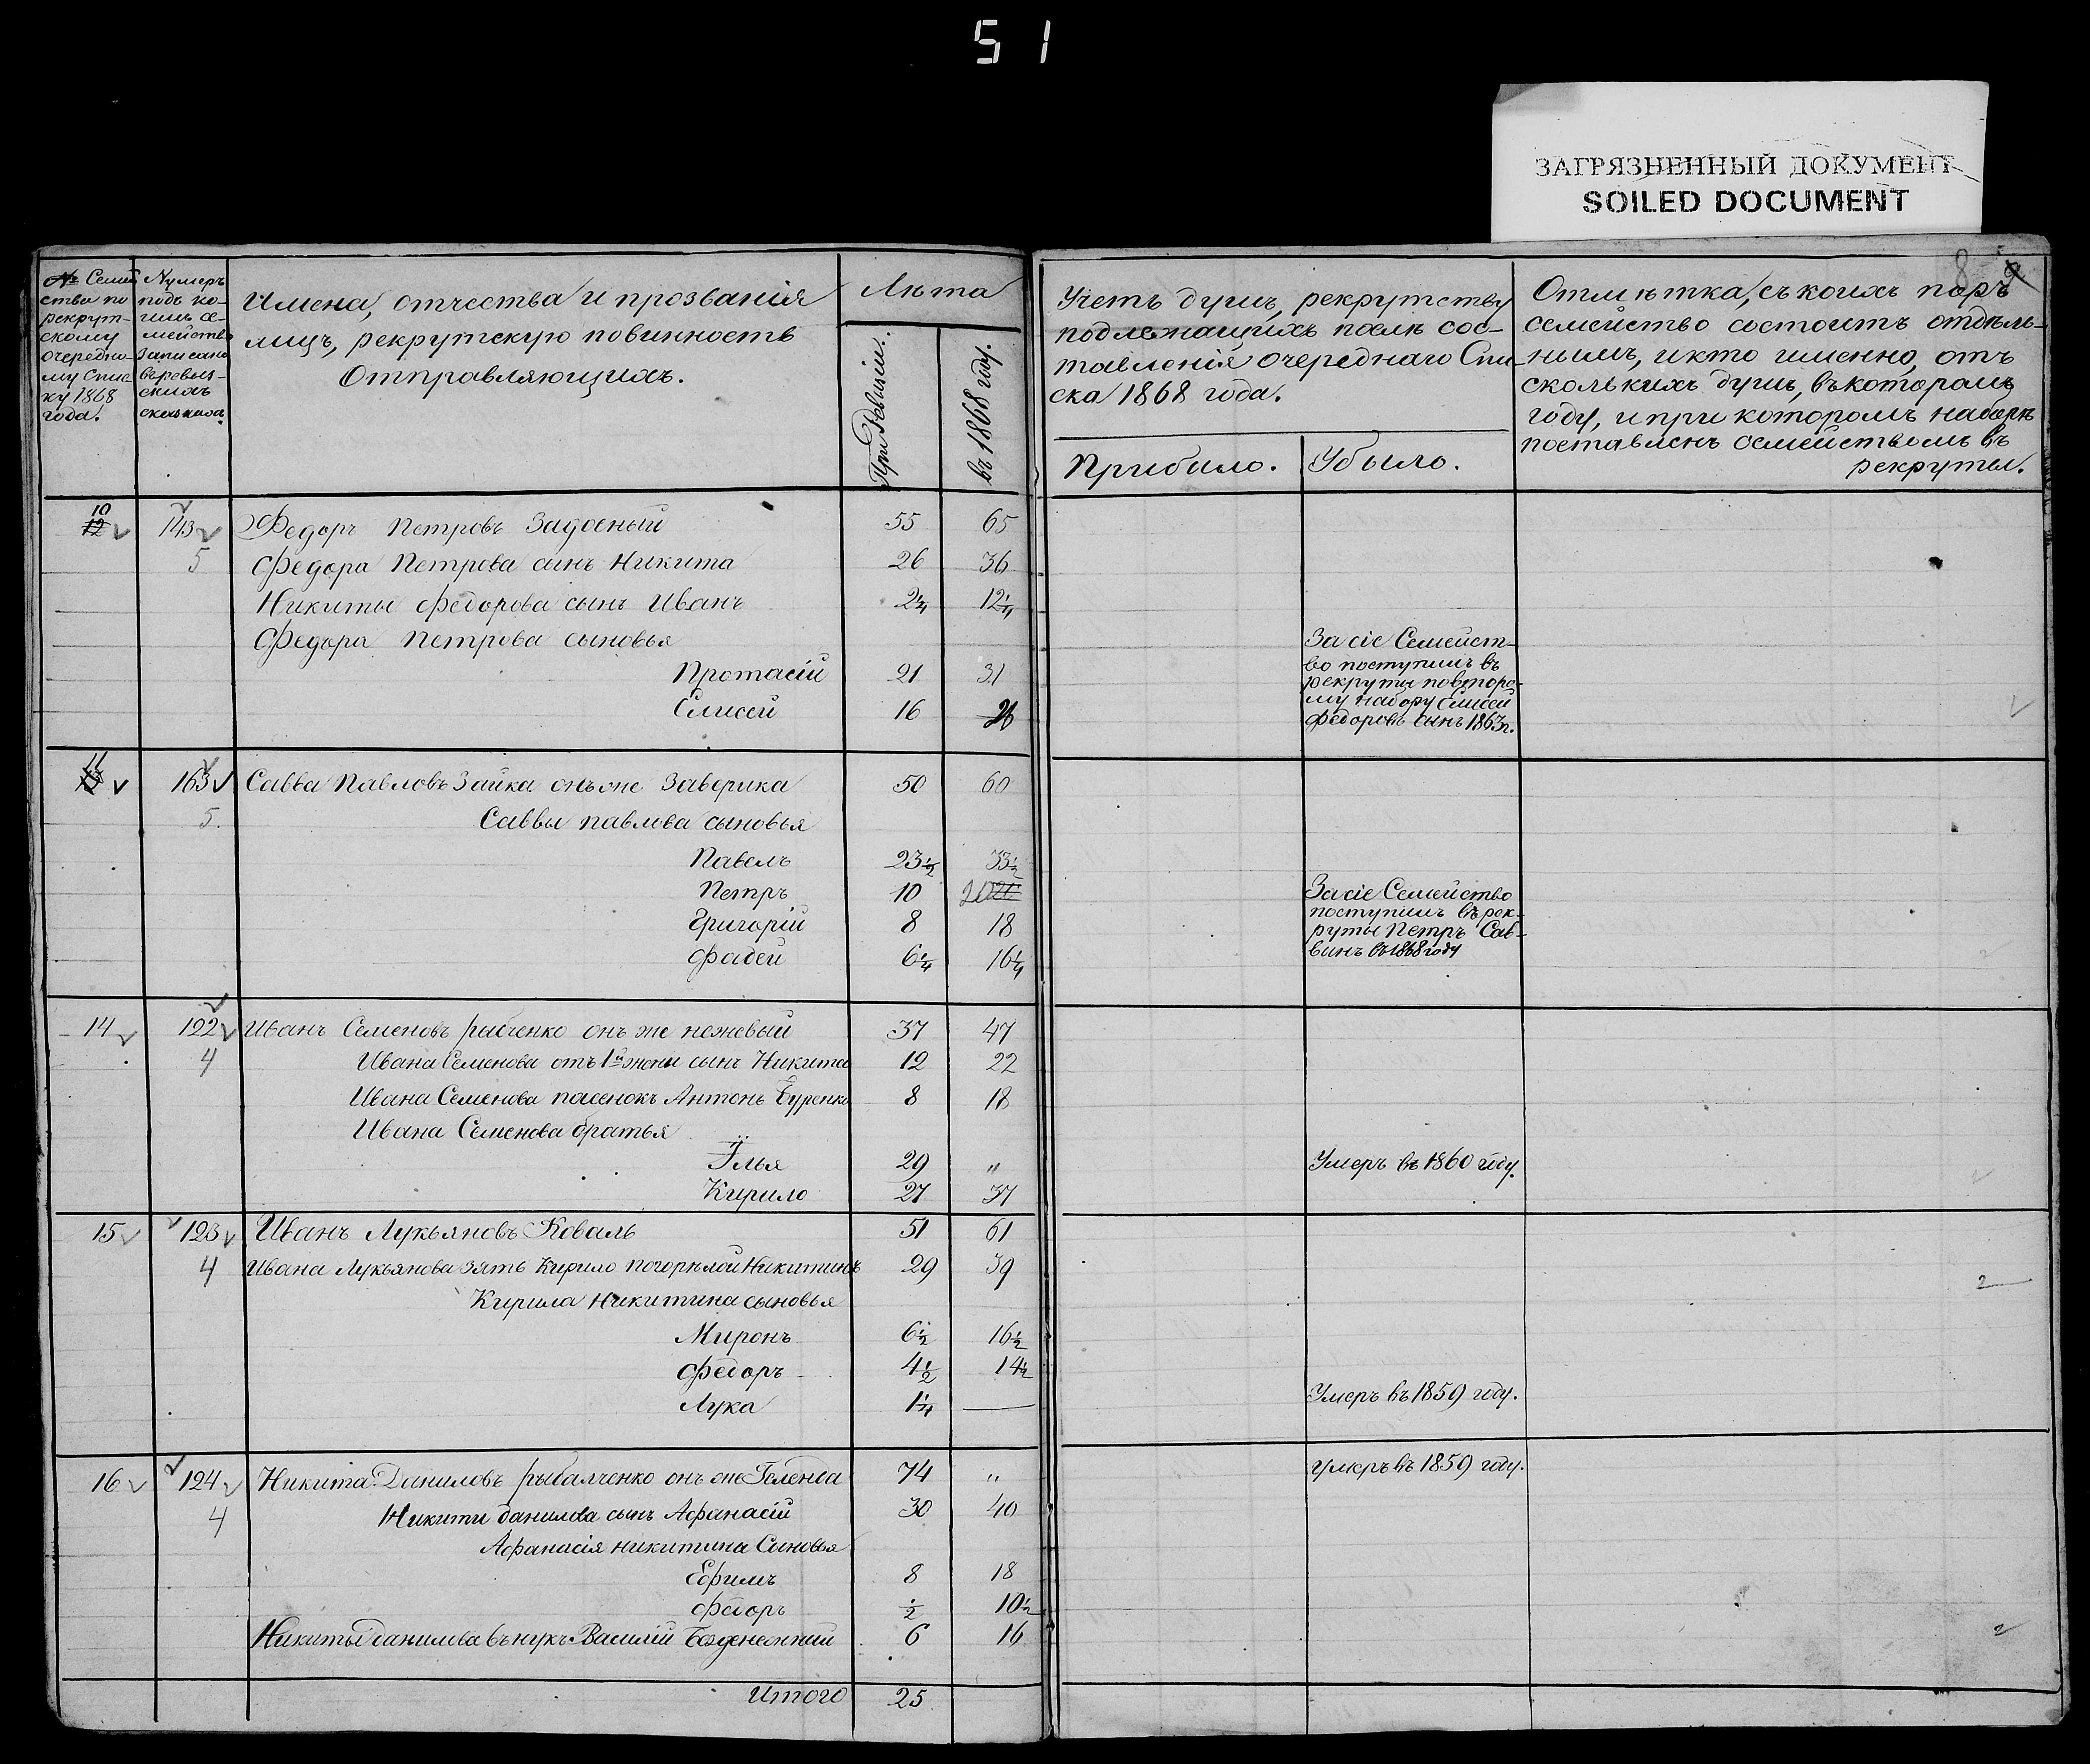 51
ЗАГРЯЗНЕННЫЙ ДОКУМЕНТ
SOILED DOCUMENT
8
№ Семей
ства по
рекрут-
скому
очередно-
му Спис
ку 1868
года.
Нумеръ
подъ ко-
имъ се-
мейство
записано
въ ревиз-
скихъ
сказкахъ.
Имена, отчества и прозванія
лицъ, рекрутскую повинность
Отправляющихъ.
Лѣта
При Ревизіи.
въ 1868 году.
Учетъ душъ, рекрутству
подлежащихъ послѣ сос-
тавленія очереднаго Спи
ска 1868 года.
Прибыло.
Убыло.
Отмѣтка, съ коихъ поръ
семейство состоитъ отдѣль-
нымъ, и кто именно, отъ
сколькихъ душъ, въ которомъ
году, и при которомъ наборѣ
поставленъ семействомъ въ
рекруты.
10
12 143 Федоръ Петровъ Задоеный 55 65
5 Федора Петрова сынъ Никита 26 36
Никиты Федорова сынъ Иванъ 2¼ 12¼
Федора Петрова сыновья
Протасій 21 31
Елисей 16 26
За сіе Семейст-
во поступилъ въ
рекруты по второ-
му набору Елисей
Федоровъ сынъ 1863 г.
11
163 Савва Павловъ Зайка онъ же Заверика 50 60
5. Саввы павлова сыновья
Павелъ 23½ 33½
Петръ 10 20
Григорій 8 18
Фадей 6¼ 16¼
За сіе Семейство
поступилъ въ рек-
руты Петръ Сав-
винъ въ 1868 году
14 122 Иванъ Семеновъ рабченко онъ же нежевый 37 47
4 Ивана Семенова отъ 1й жены сынъ Никита 12 22
Ивана Семенова пасенокъ Антонъ Буренко 8 18
Ивана Семенова братья
Илья 29 „ Умеръ въ 1860 году.
Кирило 27 37
15 123 Иванъ Лукьяновъ Коваль 51 61
4 Ивана Лукьянова зять Кирило погорилой Никитинъ 29 39
Кирила Никитина сыновья
Миронъ 6½ 16½
Федоръ 4½ 14½
Лука 1¼ — Умеръ въ 1859 году.
16 124 Никита Даниловъ рыбалченко онъ же 74 „ умеръ въ 1859 году.
4 Никиты данилова сынъ Афанасій 30 40
Афанасія никитина Сыновья
Ефимъ 8 18
Федоръ ½ 10½
Никиты данилова внукъ Василій 6 16
Итого 25